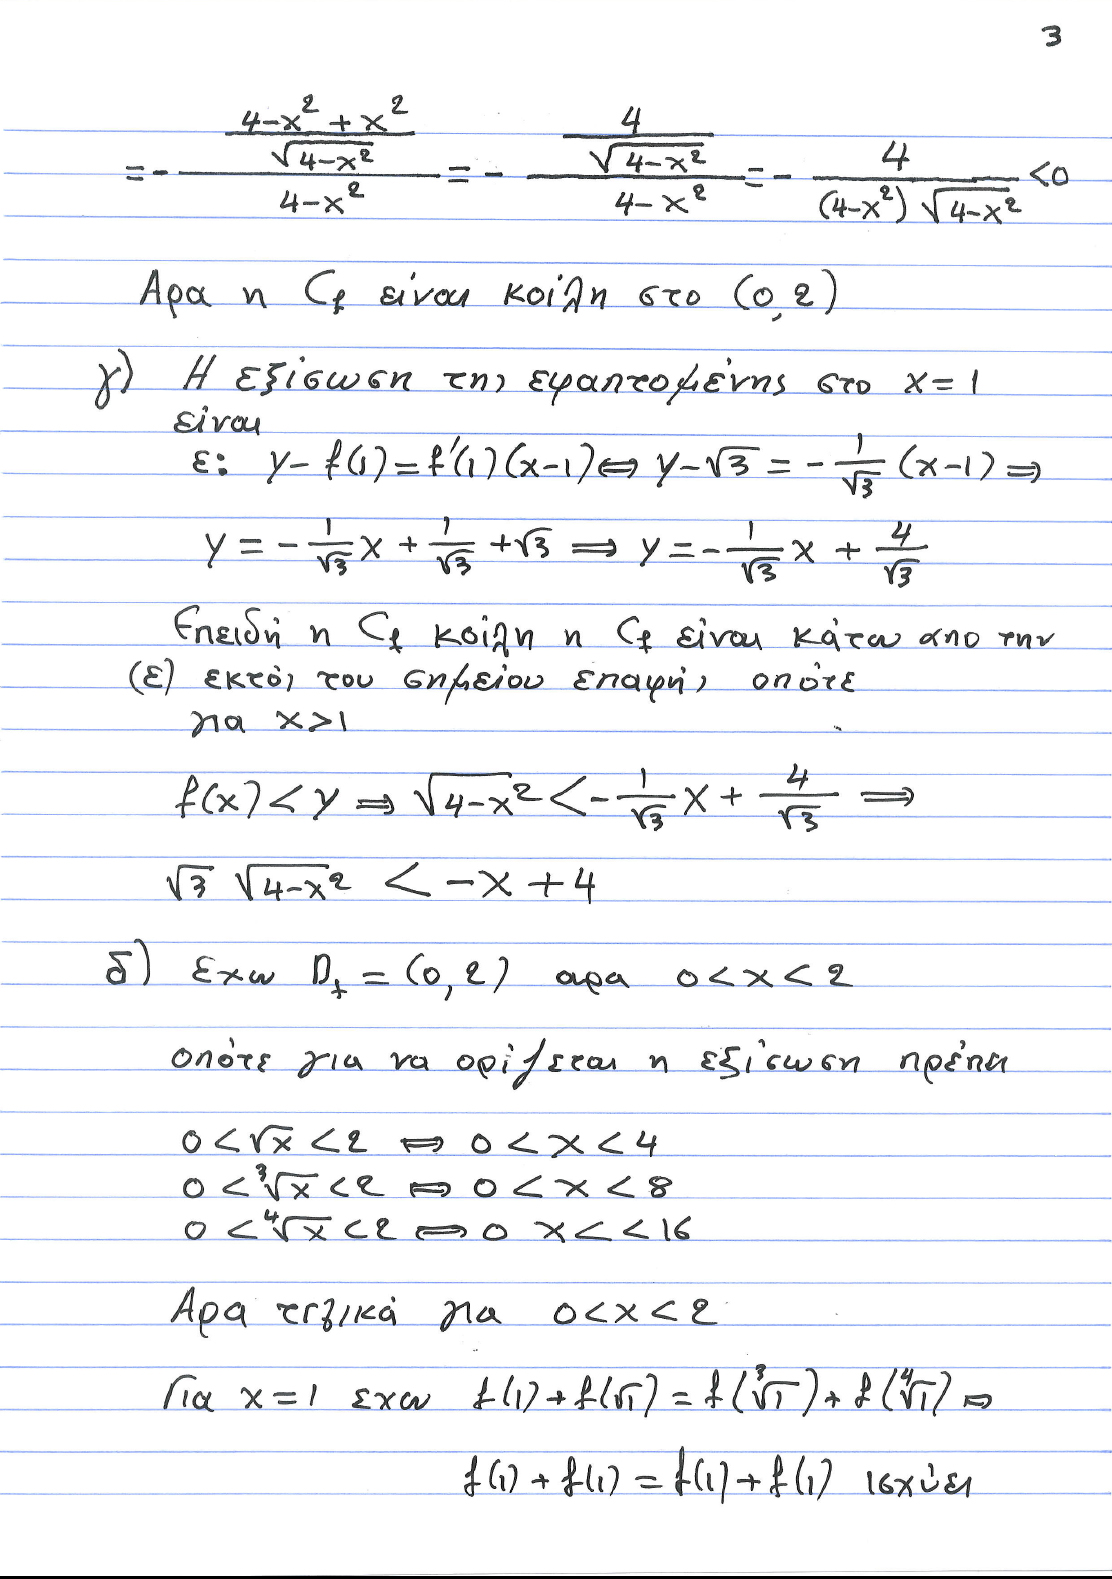 3
= - \frac{\frac{4-x^2+x^2}{\sqrt{4-x^2}}}{4-x^2} = - \frac{\frac{4}{\sqrt{4-x^2}}}{4-x^2} = - \frac{4}{(4-x^2)\sqrt{4-x^2}} <0
Αρα η Cf είναι κοίλη στο (0,2)
γ) Η εξίσωση της εφαπτομένης στο x=1
είναι
ε: y-f(1)=f'(1)(x-1)⇔ y-√3 = -\frac{1}{√3}(x-1) ⇒
y = -\frac{1}{√3}x + \frac{1}{√3} +√3 ⇒ y = -\frac{1}{√3}x + \frac{4}{√3}
Επειδή η Cf κοίλη η Cf είναι κάτω απο την
(ε) εκτός του σημείου επαφής οπότε
για x>1
f(x)<y ⇒ \sqrt{4-x^2} < -\frac{1}{√3}x + \frac{4}{√3} ⇒
√3 \sqrt{4-x^2} < -x+4
δ) εχω Df = (0,2) αρα 0<x<2
οπότε για να ορίζεται η εξίσωση πρέπει
0<√x<2 ⇔ 0<x<4
0<∛x<2 ⇔ 0<x<8
0<∜x<2 ⇔ 0 x<<16
Αρα τελικά για 0<x<2
Για x=1 εχω f(1)+f(√1) = f(∛1)+f(∜1) ⇒
f(1)+f(1) = f(1)+f(1) ισχύει